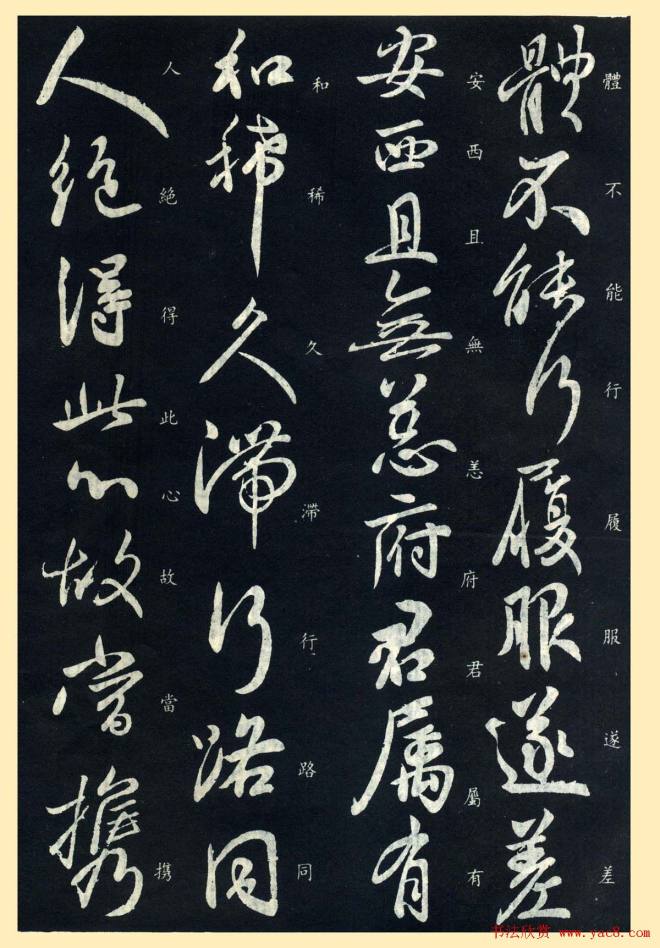 體不能行履服遂差
安西且無恙府君屬有
和稀久滯行路同
人絕得此心故當攜
體不能行履服遂差
安西且無恙府君屬有
和稀久滯行路同
人絕得此心故當携
书法欣赏 www.yac8.com